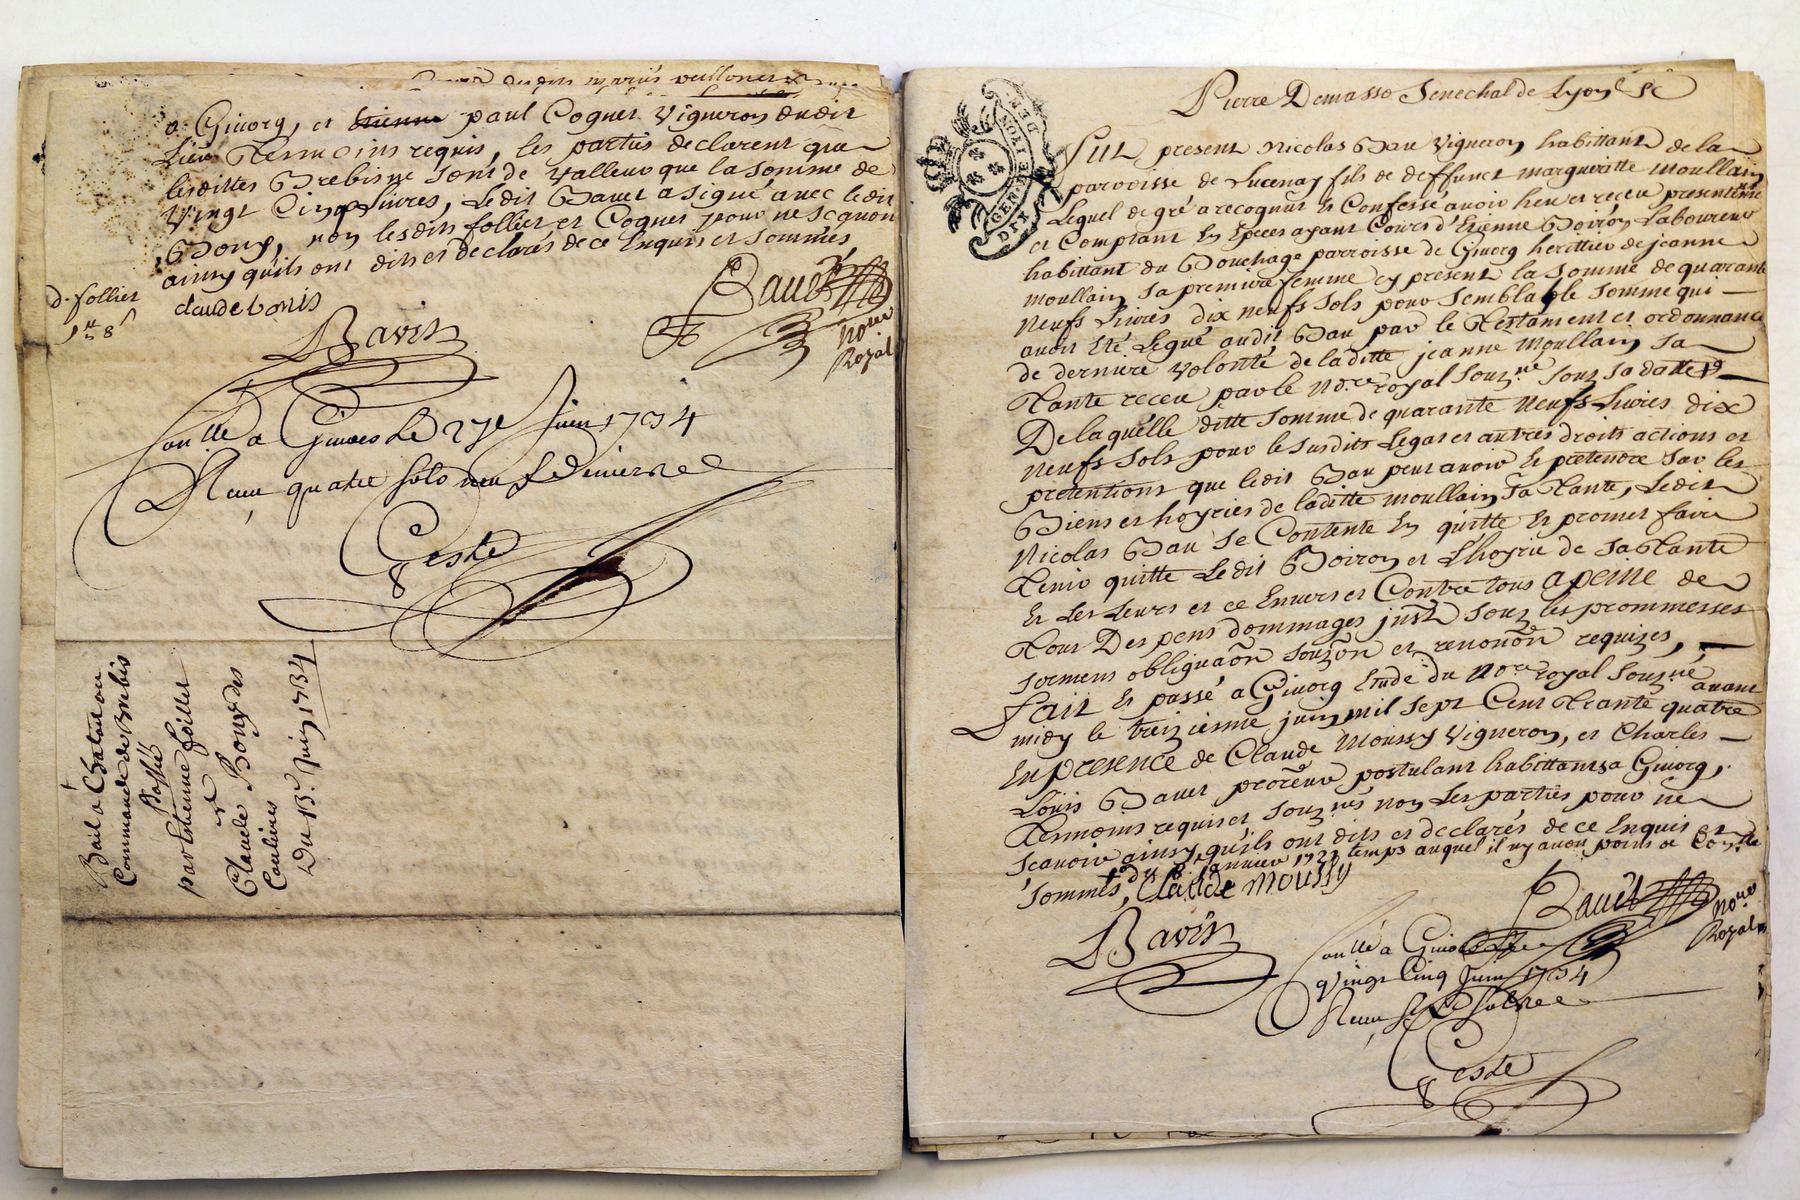 a Givorg, et Etienne paul Coquet Vigneron dudit
Lieu Tesmoins requis, les parties declarent que
lesdittes Brebis ne sont de valleur que la somme de
Vingt Cinq Livres, Ledit Bavet a signé avec ledit
Bony, non lesdits follier et Coquet pour ne scavoir
ainsy quils ont dit et declarés de ce Enquis et sommés,
d. follier
claude bonis
Bavet
Bavet
No.re
Royal
Con.llé a Givors Le 27e Juin 1734
Receu quatre sols neuf deniers
Geste
Bail a Chatal ou
Commande de Brebis
Passé
par Estienne follier
a
Claude Bony des
Coulieres
Du 13e Juin 1734
Pierre Demasso Senechal de Lyon &c
GEN. DE LYON
DIX DEN
Fut present Nicolas Bau Vigneron habittant de la
parroisse de Lucenay fils de deffunct margueritte Moullain
Lequel de gré a recognut et Confessé avoir heu et receu presentem.t
et Comptant En Especes ayant Cours d'Etienne Boiron Laboureur
habittant du Bouchage parroisse de Givorg herittier de jeanne
Moullain sa premiere femme cy present la somme de quarante
Neufs Livres dix neufs sols pour semblable somme qui
avoit Eté Legué audit Bau par le Testament et ordonnance
de derniere volonté de laditte jeanne Moullain sa
Tante receu par le No.re royal souz.né souz sa datte
De laquelle ditte somme de quarante Neufs Livres dix
Neufs sols pour le susdits Legat et autres droits actions et
pretentions que ledit Bau peut avoir et pretendre sur les
Biens et hoyries de laditte moullain sa Tante, Ledit
Nicolas Bau se Contente En quitte et promet faire
Tenir quitte Ledit Boiron et L'hoyrie de sa Tante
Et Les Leurs et ce Envers et Contre tous a peine de
Tous Des pens dommages just souz les prommesses
sermens obligaõn souzõn et renonõn requizes,
Fait et passé a Givorg Etude du No.re royal souz.né avant
midy le treizieme juin mil sept Cent Trante quatre
En presence de Claude Moussy Vigneron, et Charles
Loüis Bavet procreur postulant habittants a Givorg,
Tesmoins requis et souz.nés non Les parties pour ne
scavoir ainsy quils ont dits et declarés de ce Enquis et
sommés, du janvier 1723 temps auquel il ny avoit point de Con.lle
Claude moussy
Bavet
Bavet
No.re
Royal
Con.llé a Givors Le
Vingt Cinq Juin 1734
Receu
Geste